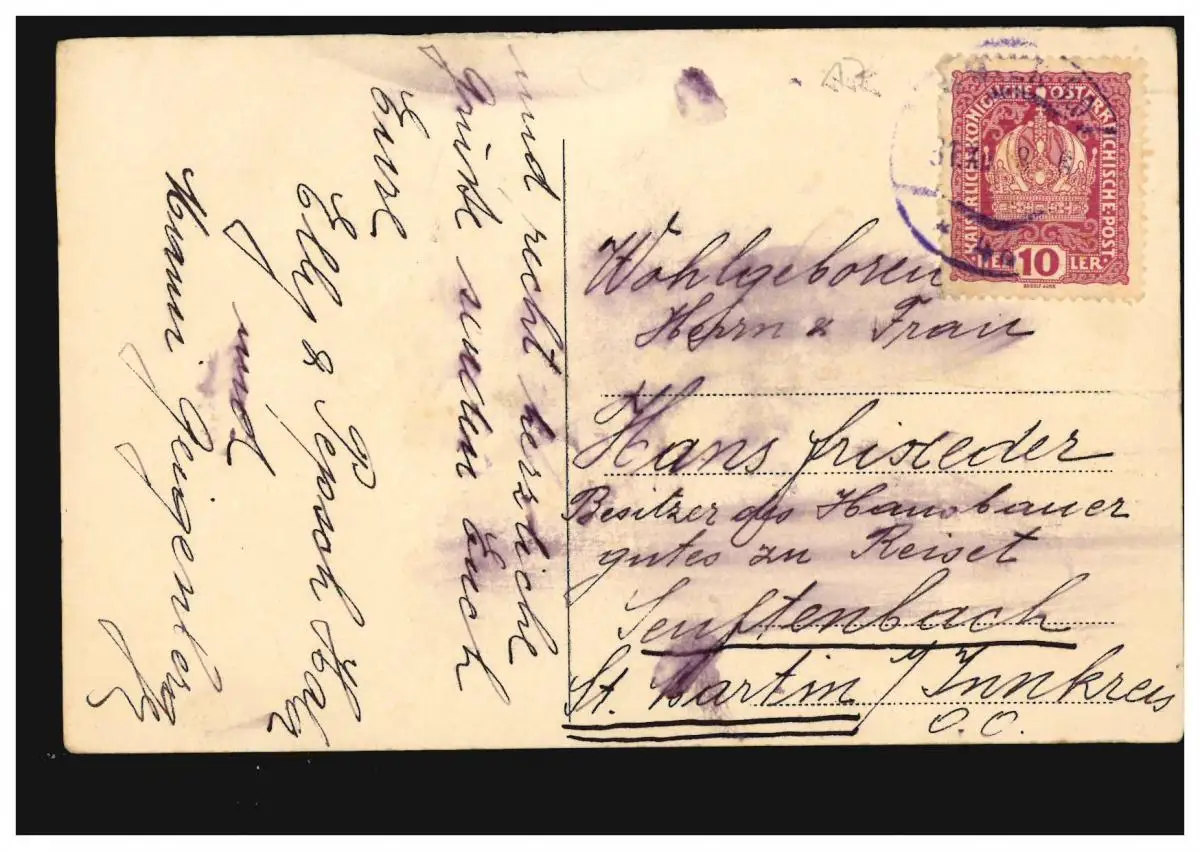 und recht herzlichl
Grüße senden Euch
Eure
Elly & Pepsch
und
Mammi Geigenberg
KAISERLICHKÖNIGLICHE ÖSTERREICHISCHE POST
HELLER 10
31.XII
Wohlgeboren
Herrn & Frau
Hans
Besitzer des Hansbauer
gutes zu Reiset
Senftenbach
St. Martin / Innkreis
O.O.